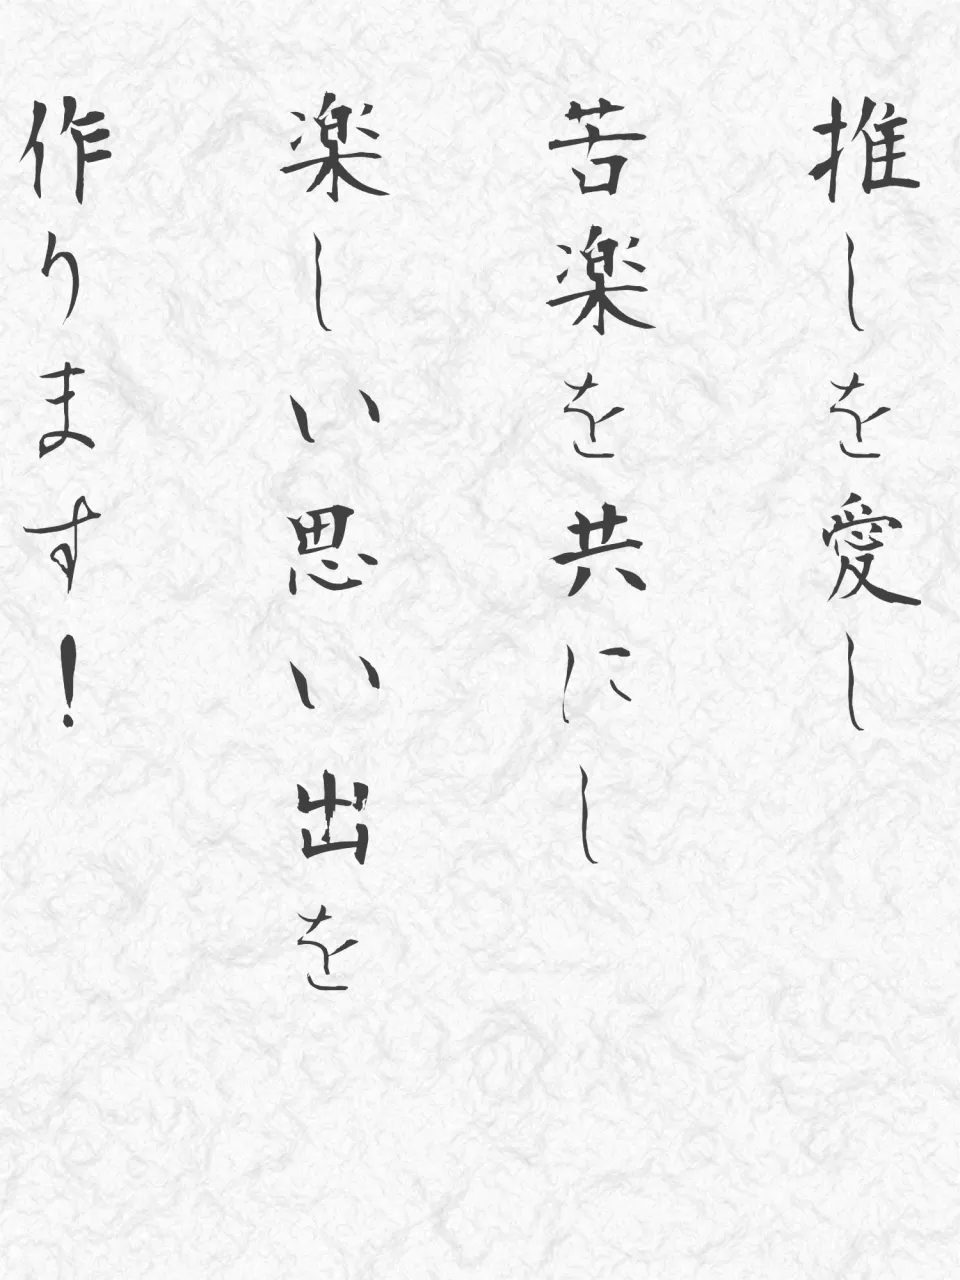 推しを愛し
苦楽を共にし
楽しい思い出を
作ります!